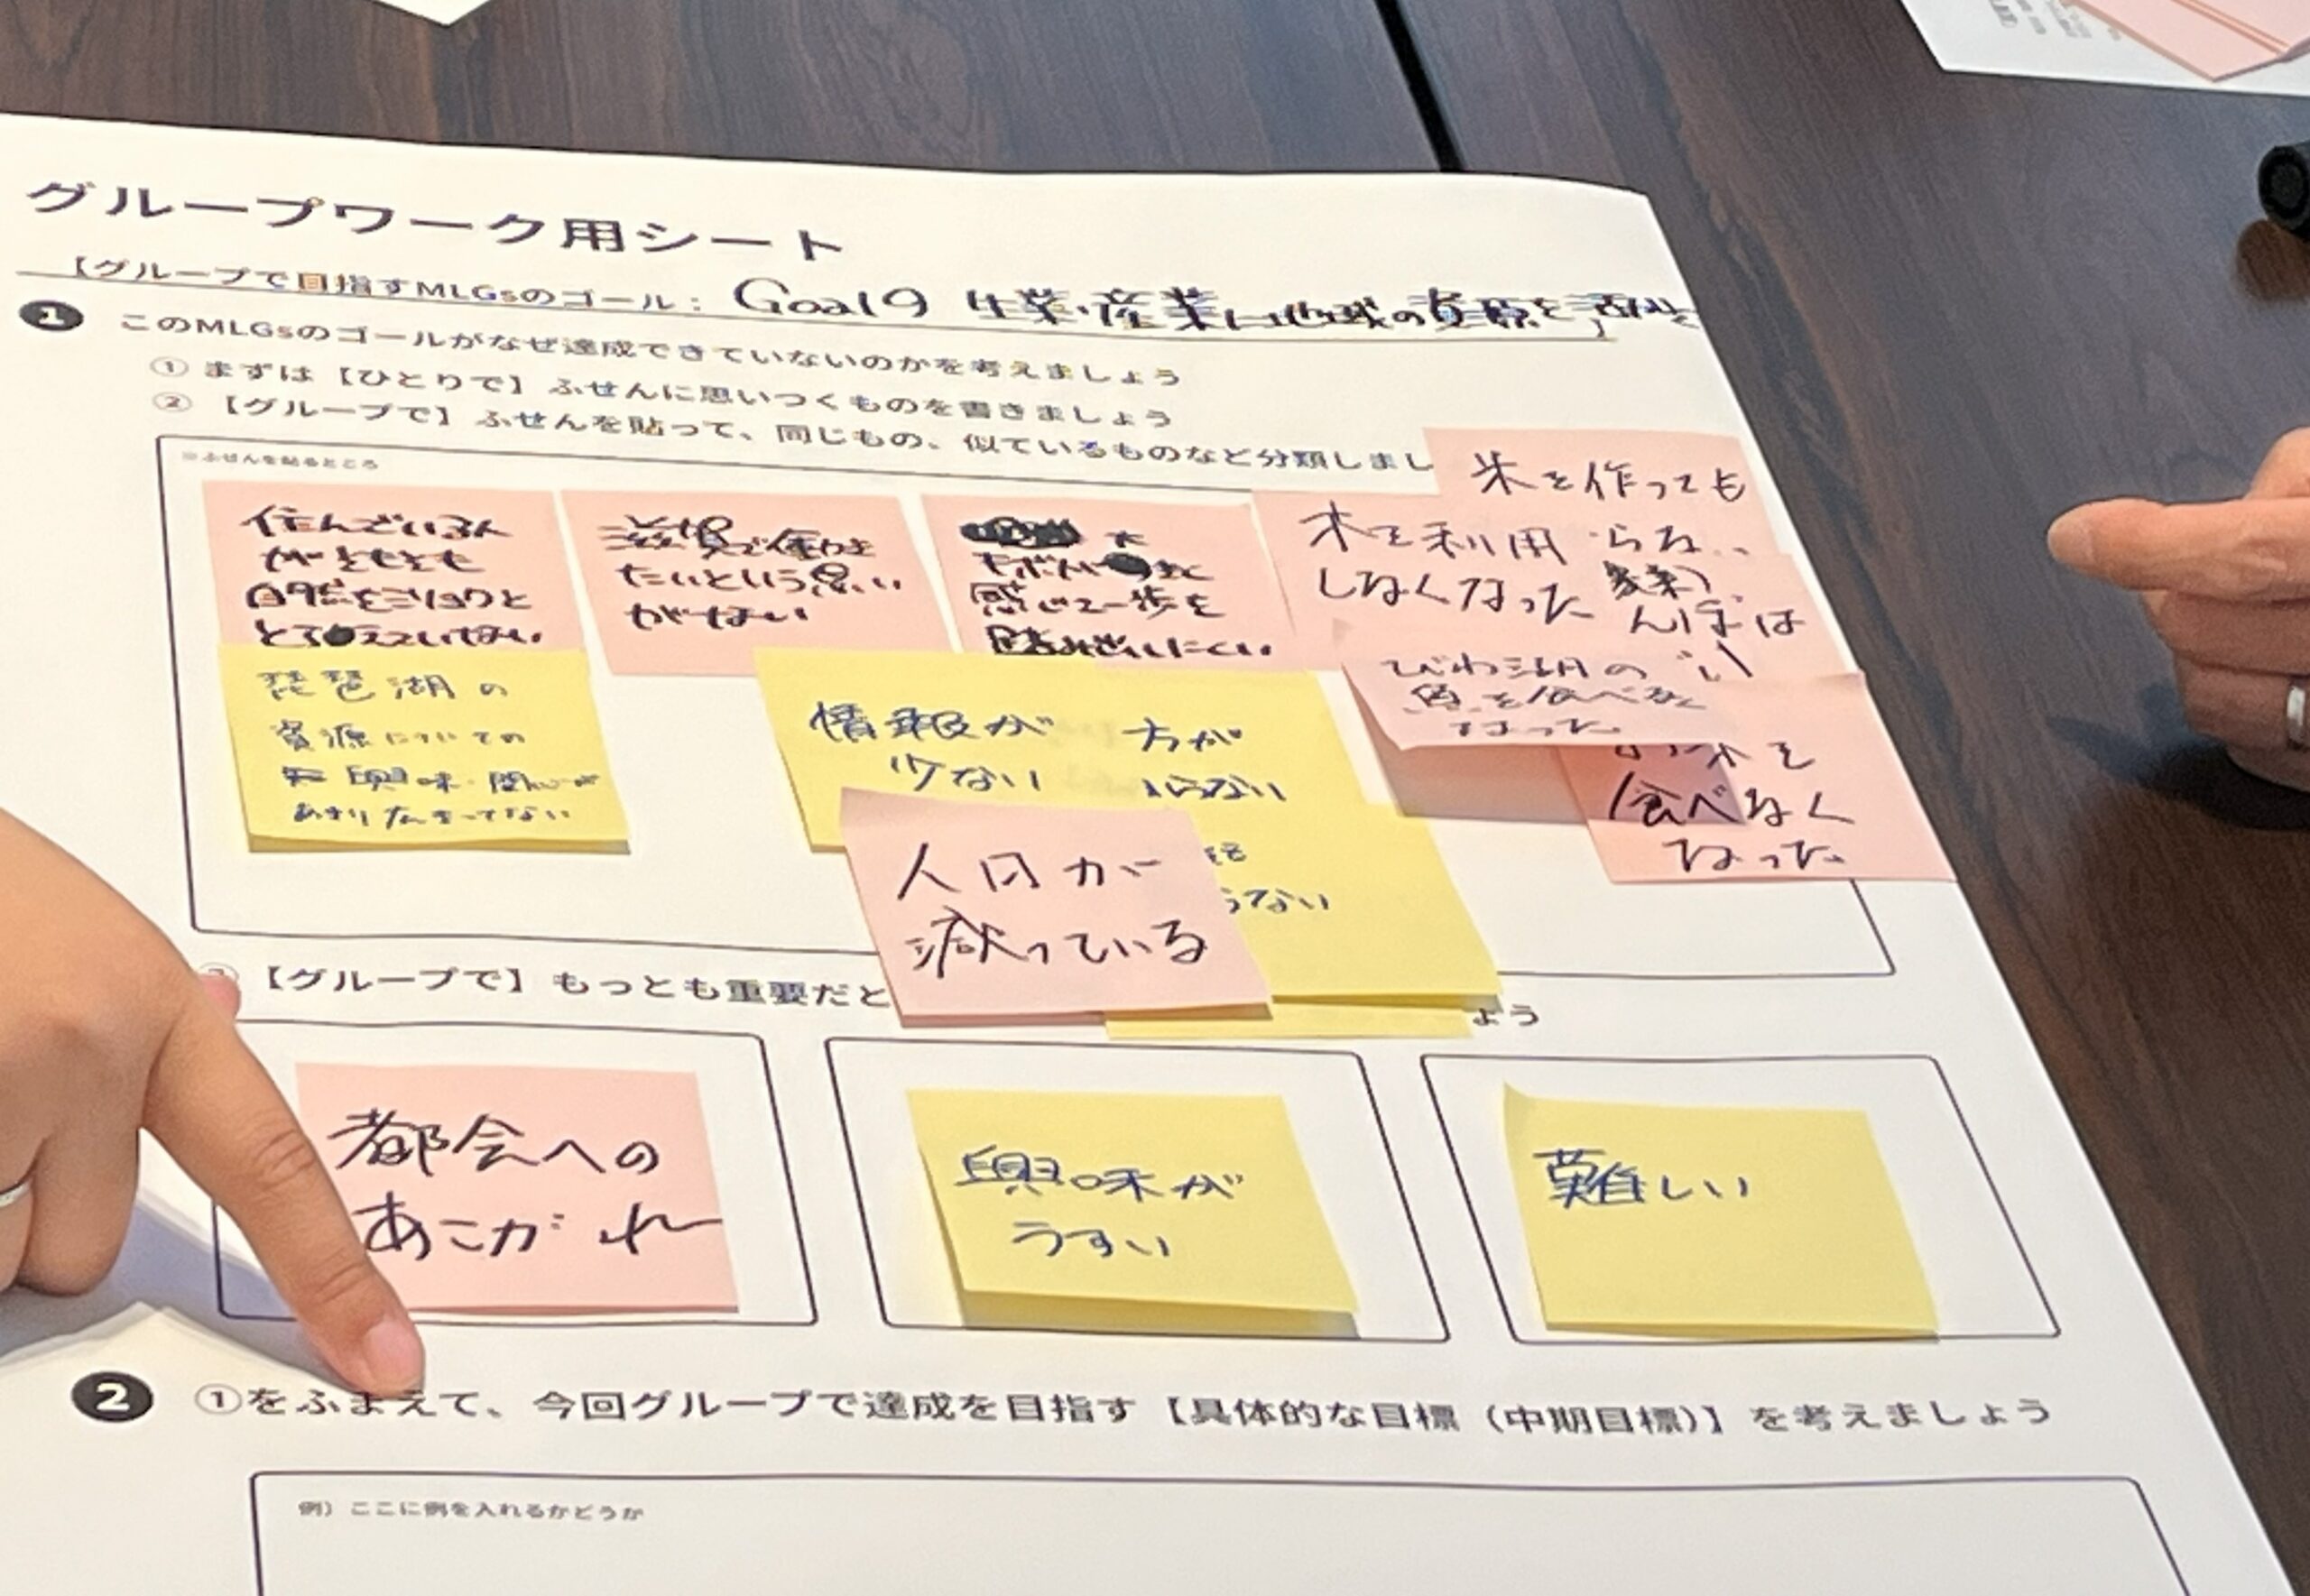 グループワーク用シート
【グループで目指すMLGsのゴール： Goal9 生業・産業に地域の資源を活かそ
1 このMLGsのゴールがなぜ達成できていないのかを考えましょう
① まずは【ひとりで】ふせんに思いつくものを書きましょう
② 【グループで】ふせんを貼って、同じもの、似ているものなど分類しまし
※ふせんを貼るところ
住んでいる人
がそもそも
自然をミリョクと
とらえていない
滋賀で働き
たいという思い
がない
感じて一歩を
踏み出しにくい
木を利用
しなくなった
米を作っても
びわ湖の
魚を食べなく
なった
食べなく
なった
琵琶湖の
資源についての
興味・関心が
あまり広まってない
情報が
少ない
方が
らない
人口が
減っている
【グループで】もっとも重要だと
ょう
都会への
あこがれ
興味が
うすい
難しい
2 ①をふまえて、今回グループで達成を目指す【具体的な目標（中期目標）】を考えましょう
例）ここに例を入れるかどうか